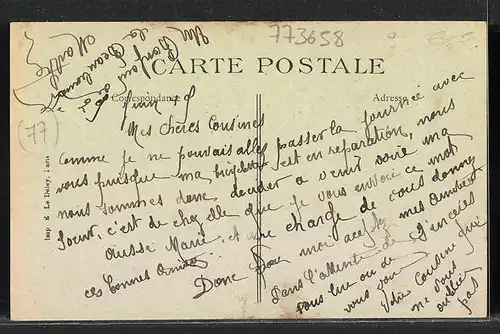 773658
CARTE POSTALE
Correspondance
Adresse
(77)
Imp. E. Le Deley, Paris
Marthe
Un
Bonjour
de
Mes chères Cousines
Comme je ne pouvais aller passer la journée avec
vous puisque ma bicyclette est en réparation, nous
nous sommes donc décider a venir voire ma
soeur, c'est de chez elle que je vous envoie ce mot
Aussi Marie et me charge de vous donner
ces bonnes amitiés
Donc pour moi mes
Dans l'attente de
vous lire ou de
vous voir
Votre Cousine qui
ne vous
oublie
pas